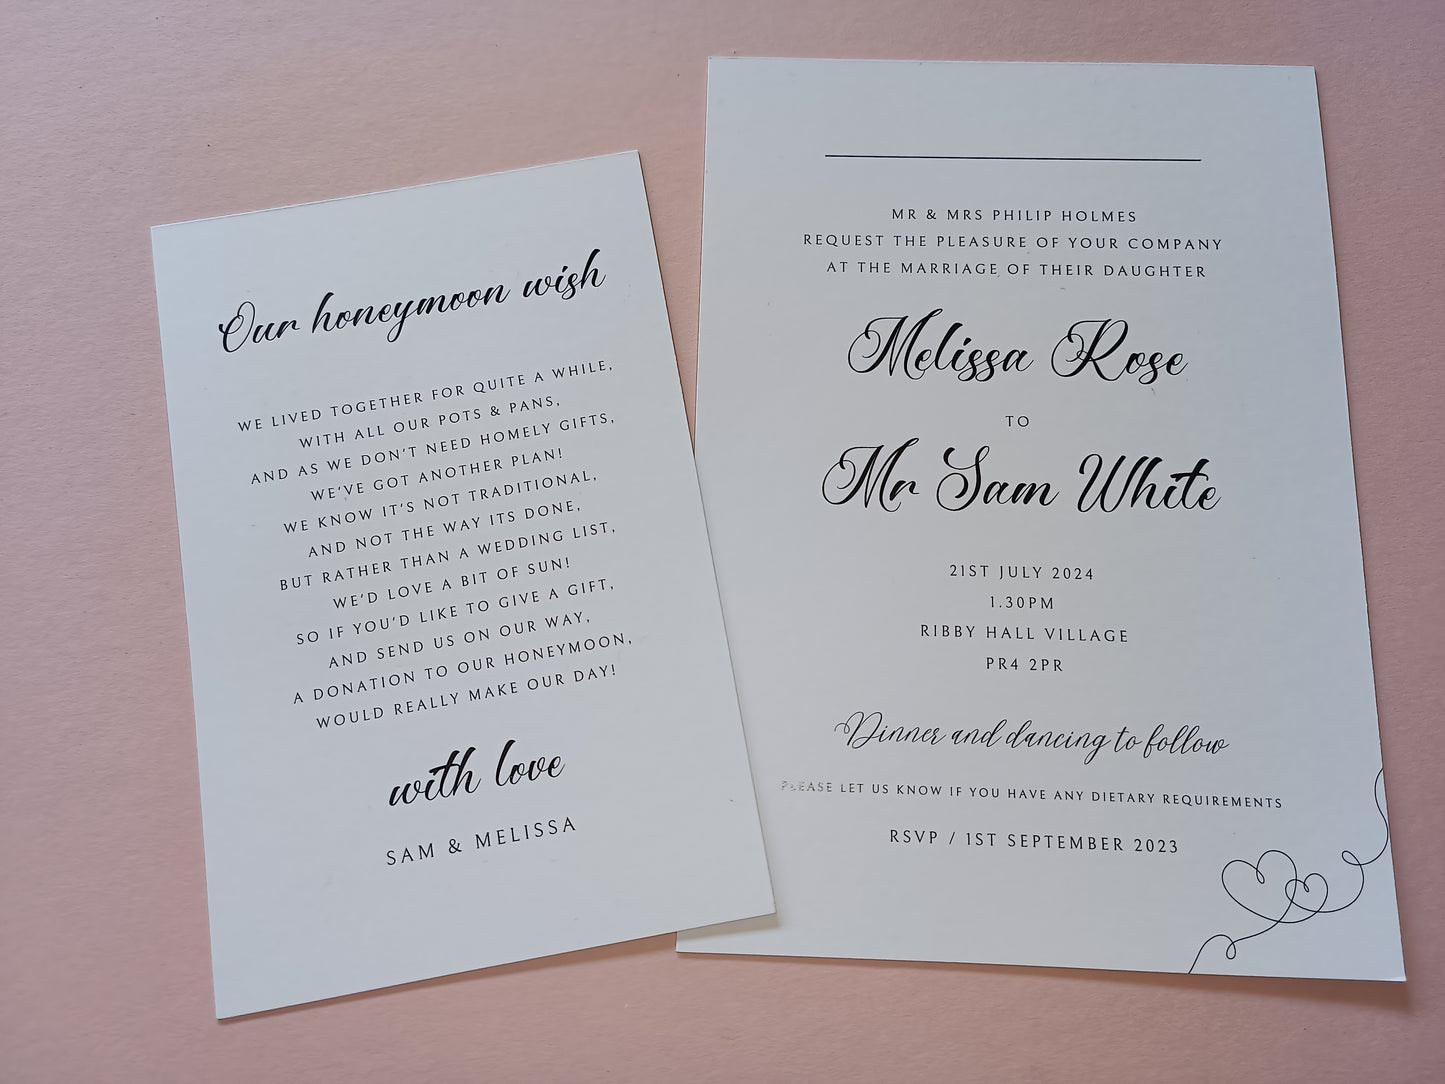 Our honeymoon wish
WE LIVED TOGETHER FOR QUITE A WHILE,
WITH ALL OUR POTS & PANS,
AND AS WE DON'T NEED HOMELY GIFTS,
WE'VE GOT ANOTHER PLAN!
WE KNOW IT'S NOT TRADITIONAL,
AND NOT THE WAY ITS DONE,
BUT RATHER THAN A WEDDING LIST,
WE'D LOVE A BIT OF SUN!
SO IF YOU'D LIKE TO GIVE A GIFT,
AND SEND US ON OUR WAY,
A DONATION TO OUR HONEYMOON,
WOULD REALLY MAKE OUR DAY!
with love
SAM & MELISSA
MR & MRS PHILIP HOLMES
REQUEST THE PLEASURE OF YOUR COMPANY
AT THE MARRIAGE OF THEIR DAUGHTER
Melissa Rose
TO
Mr Sam White
21ST JULY 2024
1.30PM
RIBBY HALL VILLAGE
PR4 2PR
Dinner and dancing to follow
PLEASE LET US KNOW IF YOU HAVE ANY DIETARY REQUIREMENTS
RSVP / 1ST SEPTEMBER 2023